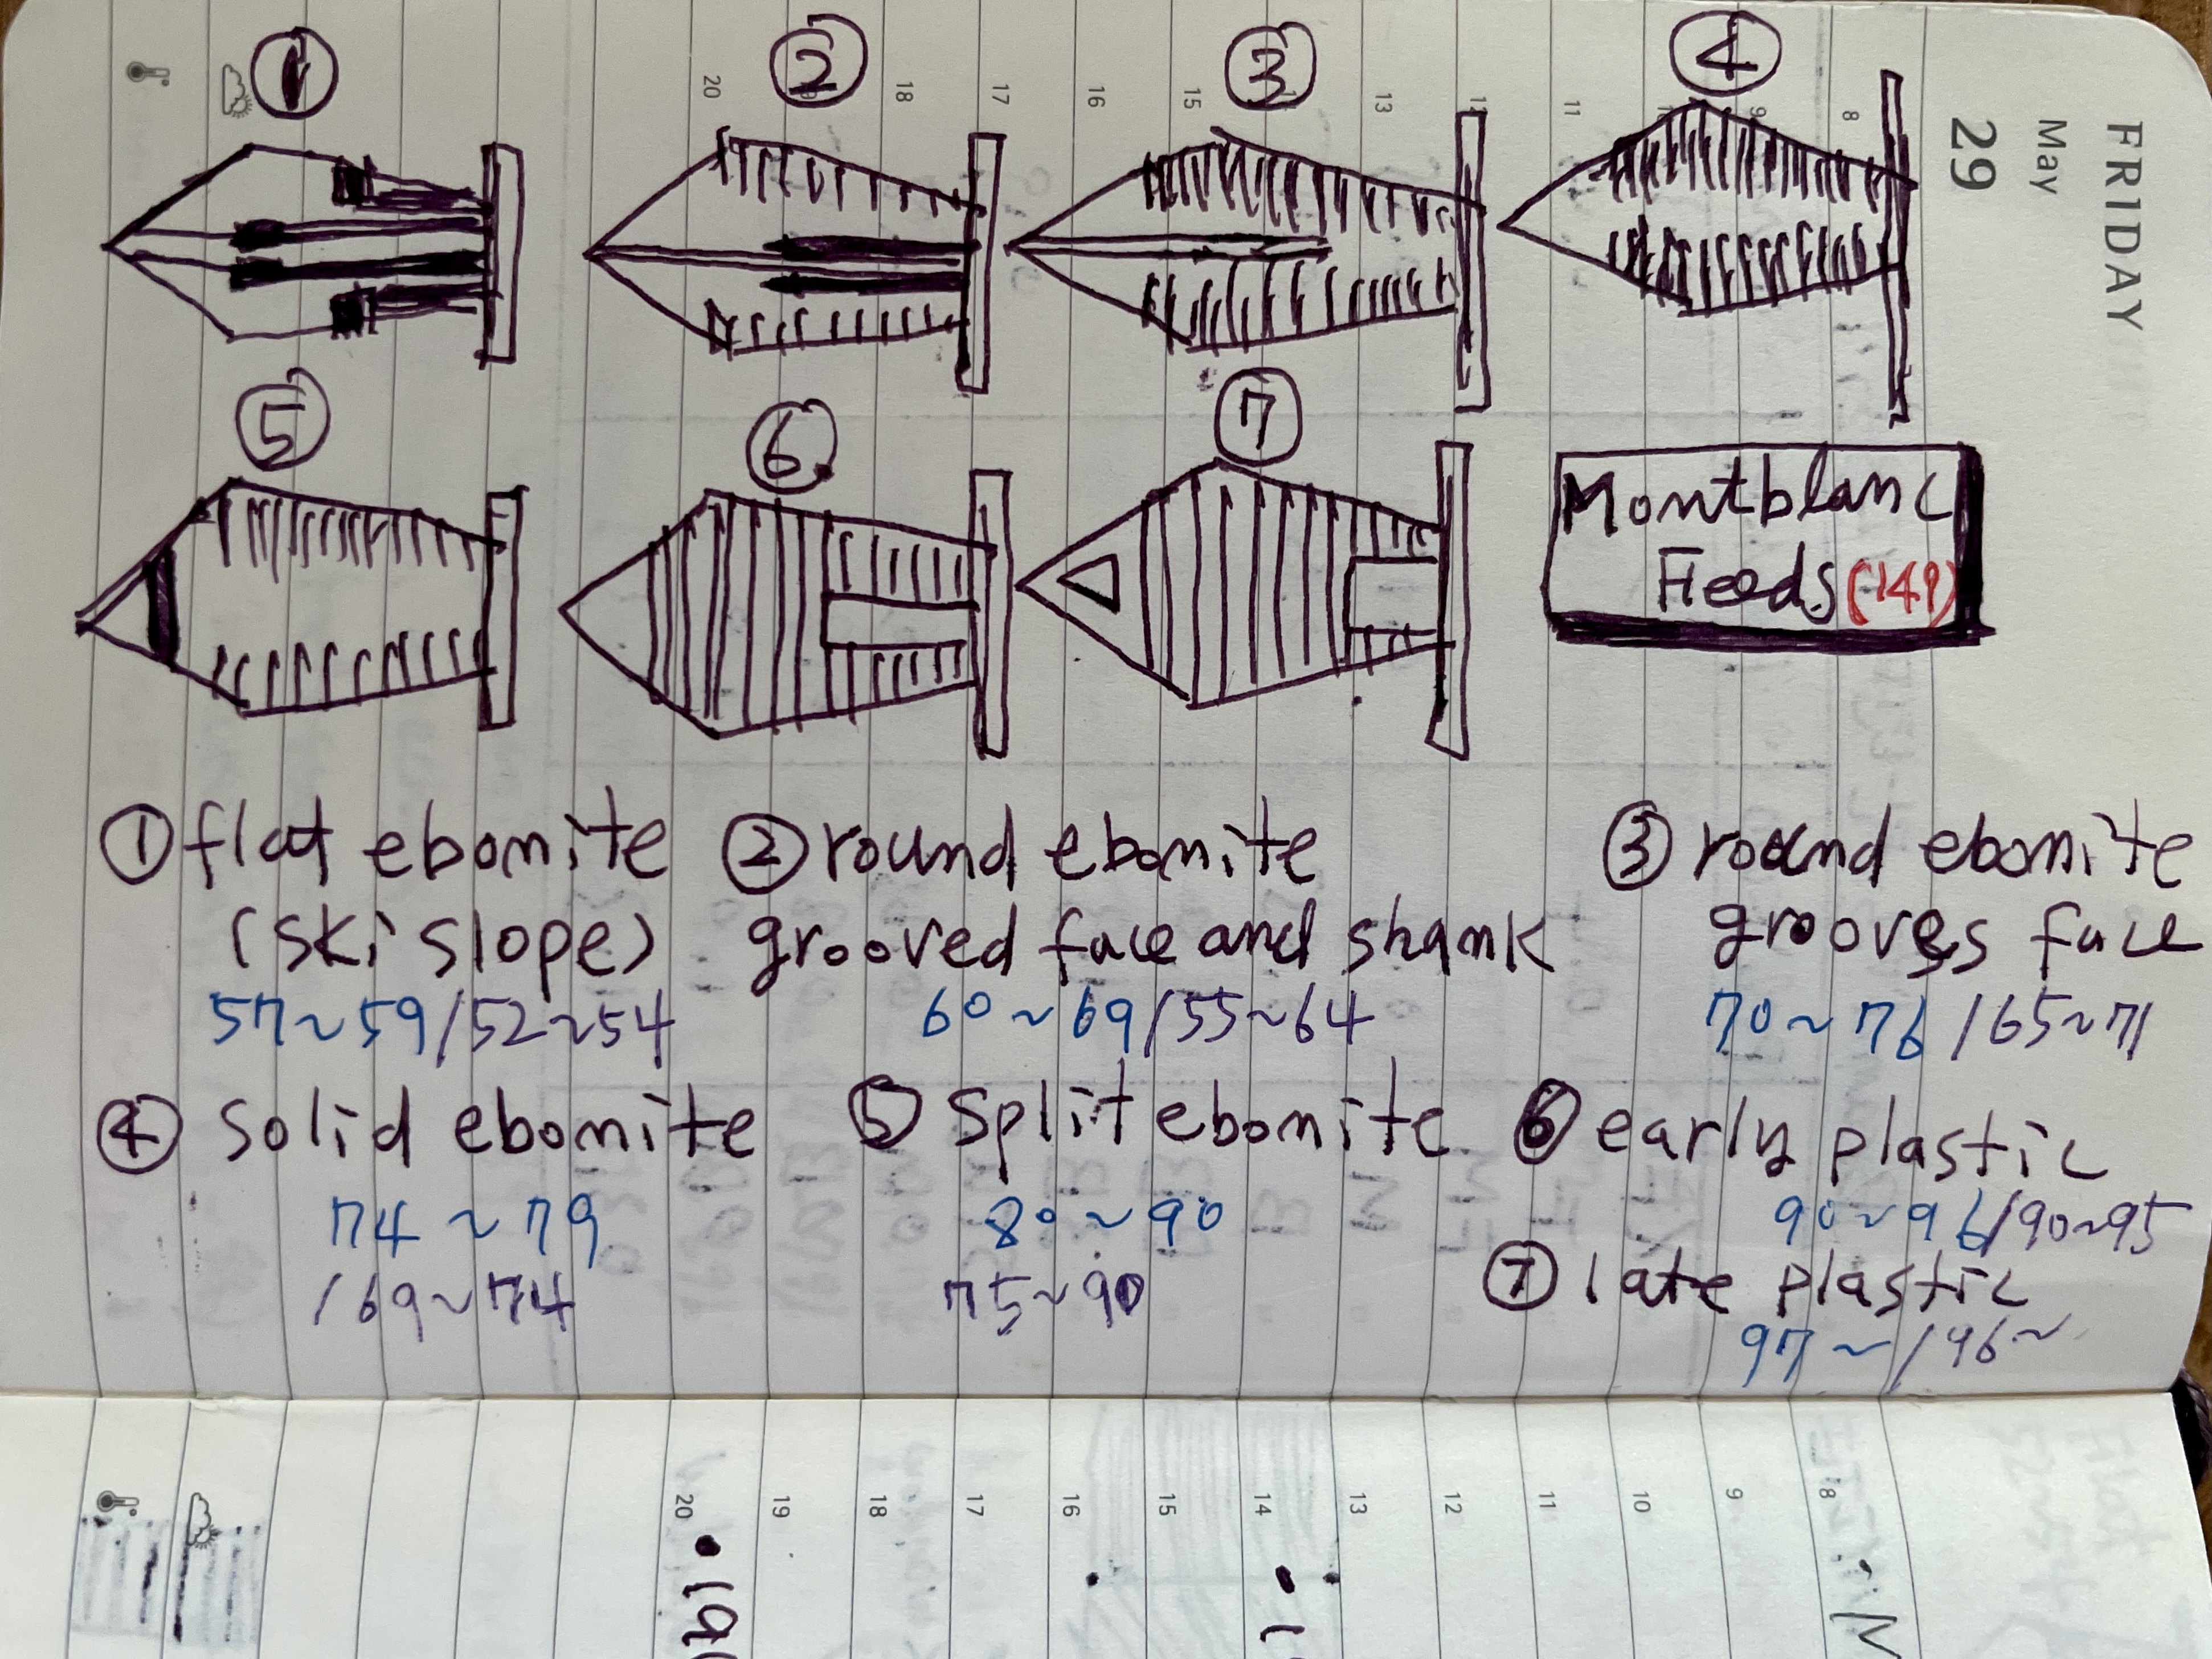 ① ② ③ ④
20 18 17 16 15 13 12 11 9 8
FRIDAY
May
29
⑤ ⑥ ⑦
Montblanc
Feeds (149)
① flat ebonite
(ski slope)
57~59/52~54
② round ebonite
grooved face and shank
60~69/55~64
③ round ebonite
grooves face
70~76/65~71
④ solid ebonite
74~79
/69~74
⑤ split ebonite
80~90
75~90
⑥ early plastic
90~96/90~95
⑦ late plastic
97~/96~
20 19 18 17 16 15 14 13 12 11 10 9 8